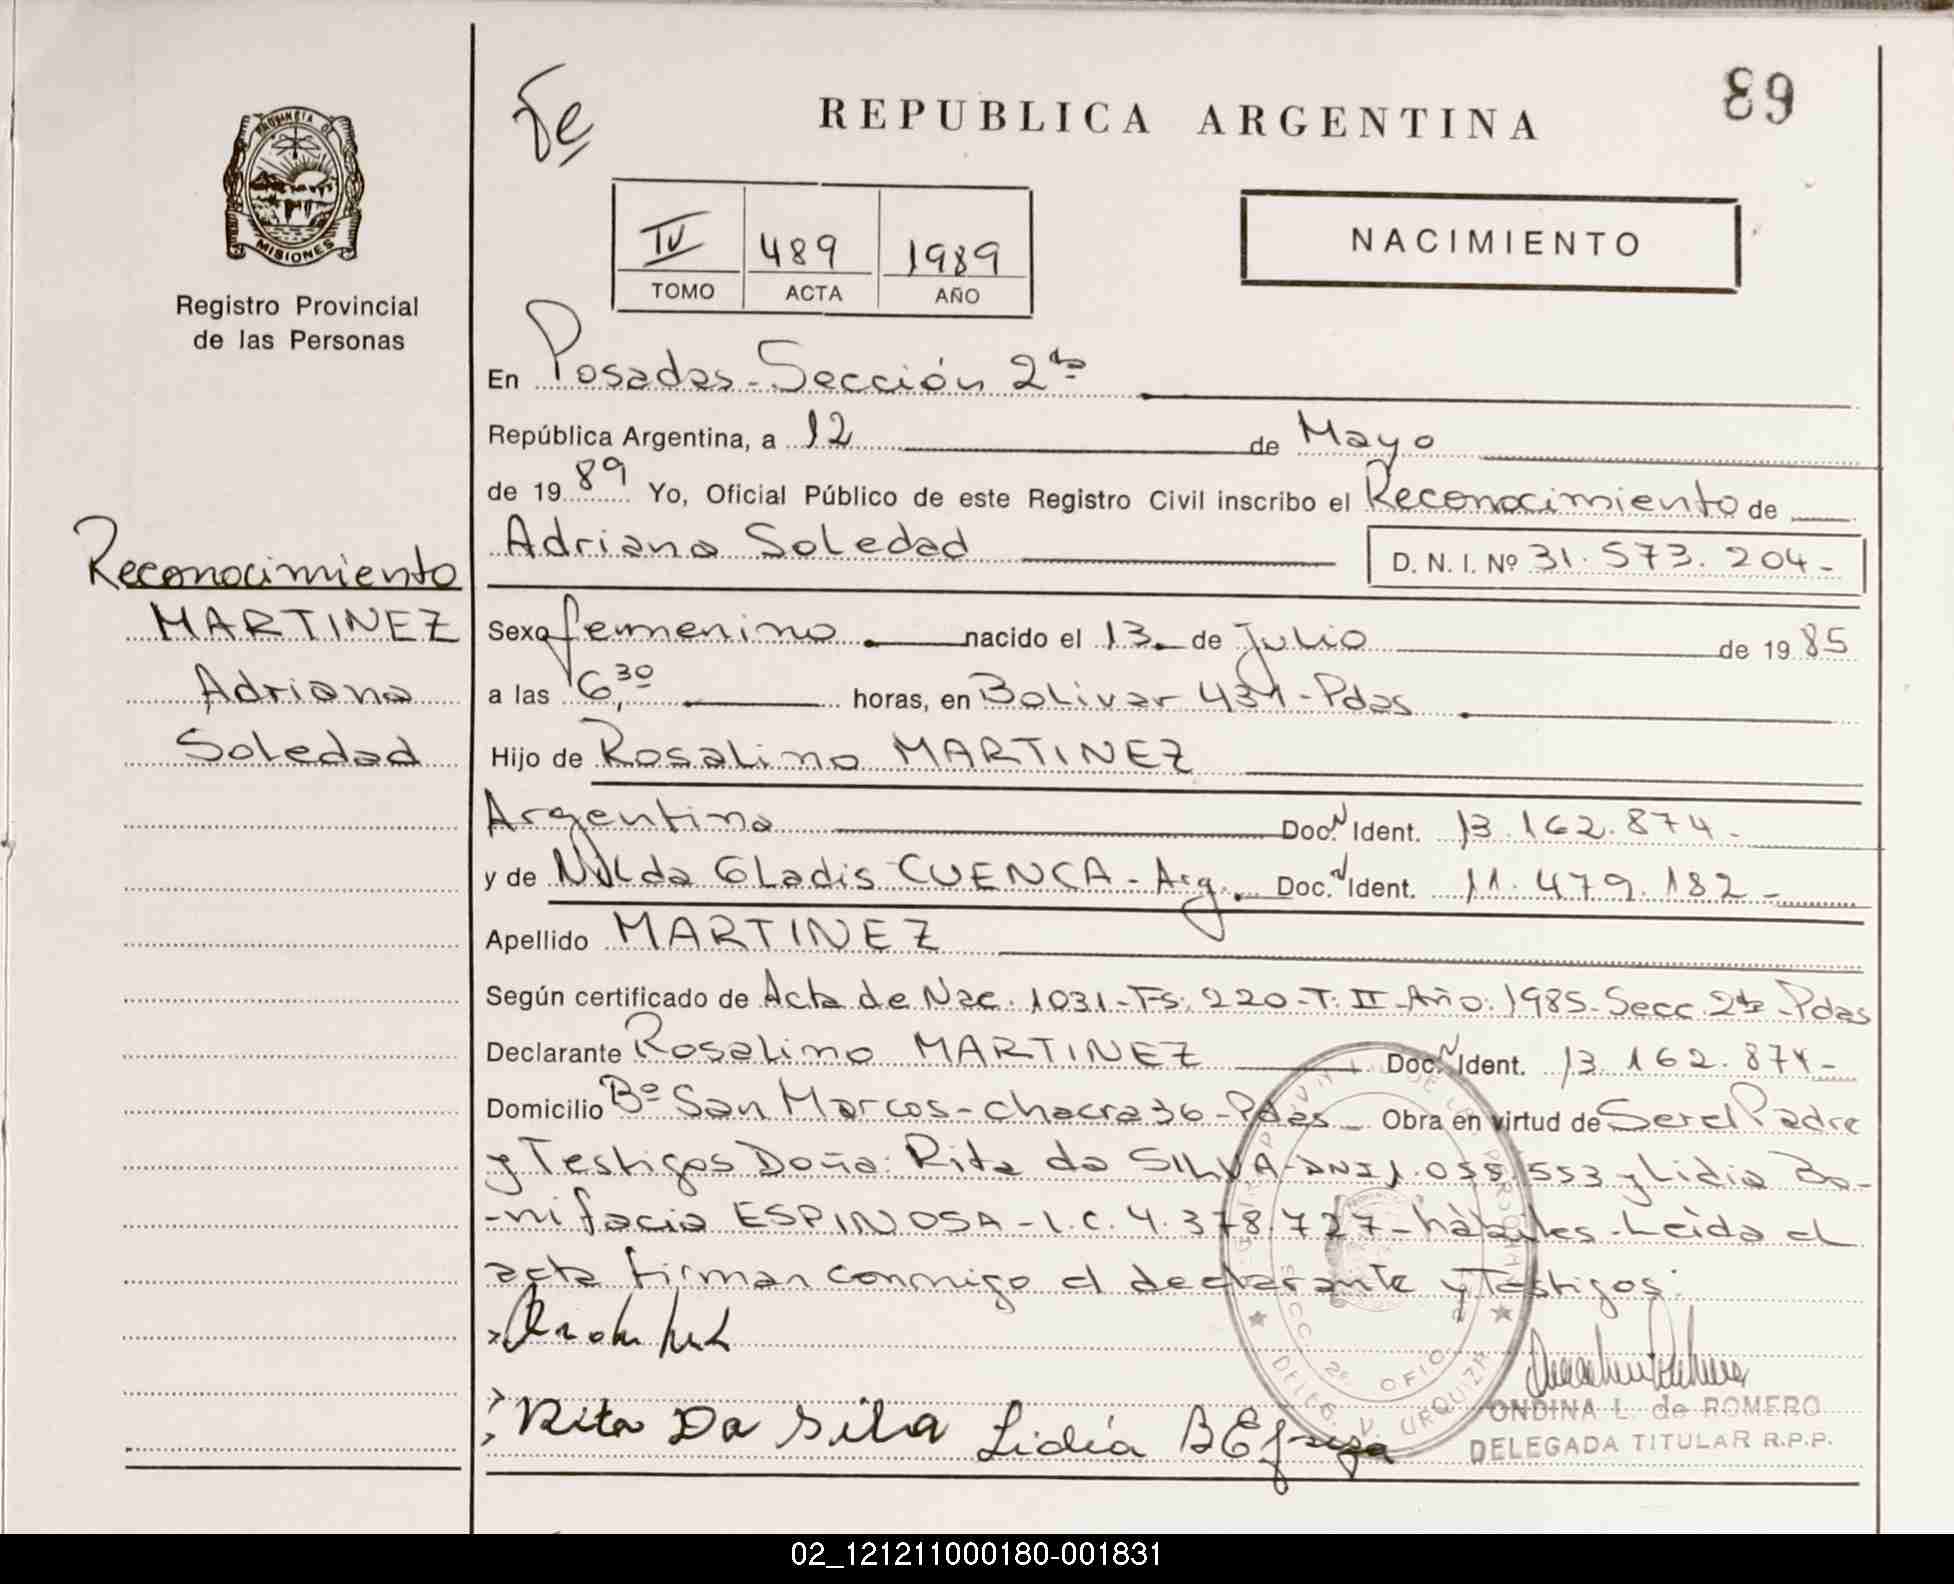 89
Fe
REPUBLICA ARGENTINA
PROVINCIA DE
MISIONES
Registro Provincial
de las Personas
IV 489 1989
TOMO ACTA AÑO
NACIMIENTO
En Posadas - Sección 2da
República Argentina, a 12 de Mayo
de 1989 Yo, Oficial Público de este Registro Civil inscribo el Reconocimiento de
Adriana Soledad D. N. I. Nº 31.573.204-
Reconocimiento
MARTINEZ
Adriana
Soledad
Sexo femenino nacido el 13 de Julio de 1985
a las 6,30 horas, en Bolivar 431 - Pdas
Hijo de Rosalino MARTINEZ
Argentino Doc. N Ident. 13.162.874-
y de Nilda Gladis CUENCA - Arg. Doc. N Ident. 11.479.182-
Apellido MARTINEZ
Según certificado de Acta de Nac. 1031 - Fs. 220 - T. II - Año: 1985 - Secc. 2da - Pdas
Declarante Rosalino MARTINEZ Doc. N Ident. 13.162.874-
Domicilio Bº San Marcos - chacra 36 - Pdas Obra en virtud de Ser el Padre
y Testigos Doña: Rita da SILVA - DNI 1.055.553 y Lidia Bo-
-nifacia ESPINOSA - L.C. 4.378.727 - hábiles - Leída el
acta firman conmigo el declarante y Testigos:
Rita Da Silva Lidia B E
SECC. 2ª OFIC.
DELEG. V. URQUIZA
ONDINA L. de ROMERO
DELEGADA TITULAR R.P.P.
02_121211000180-001831